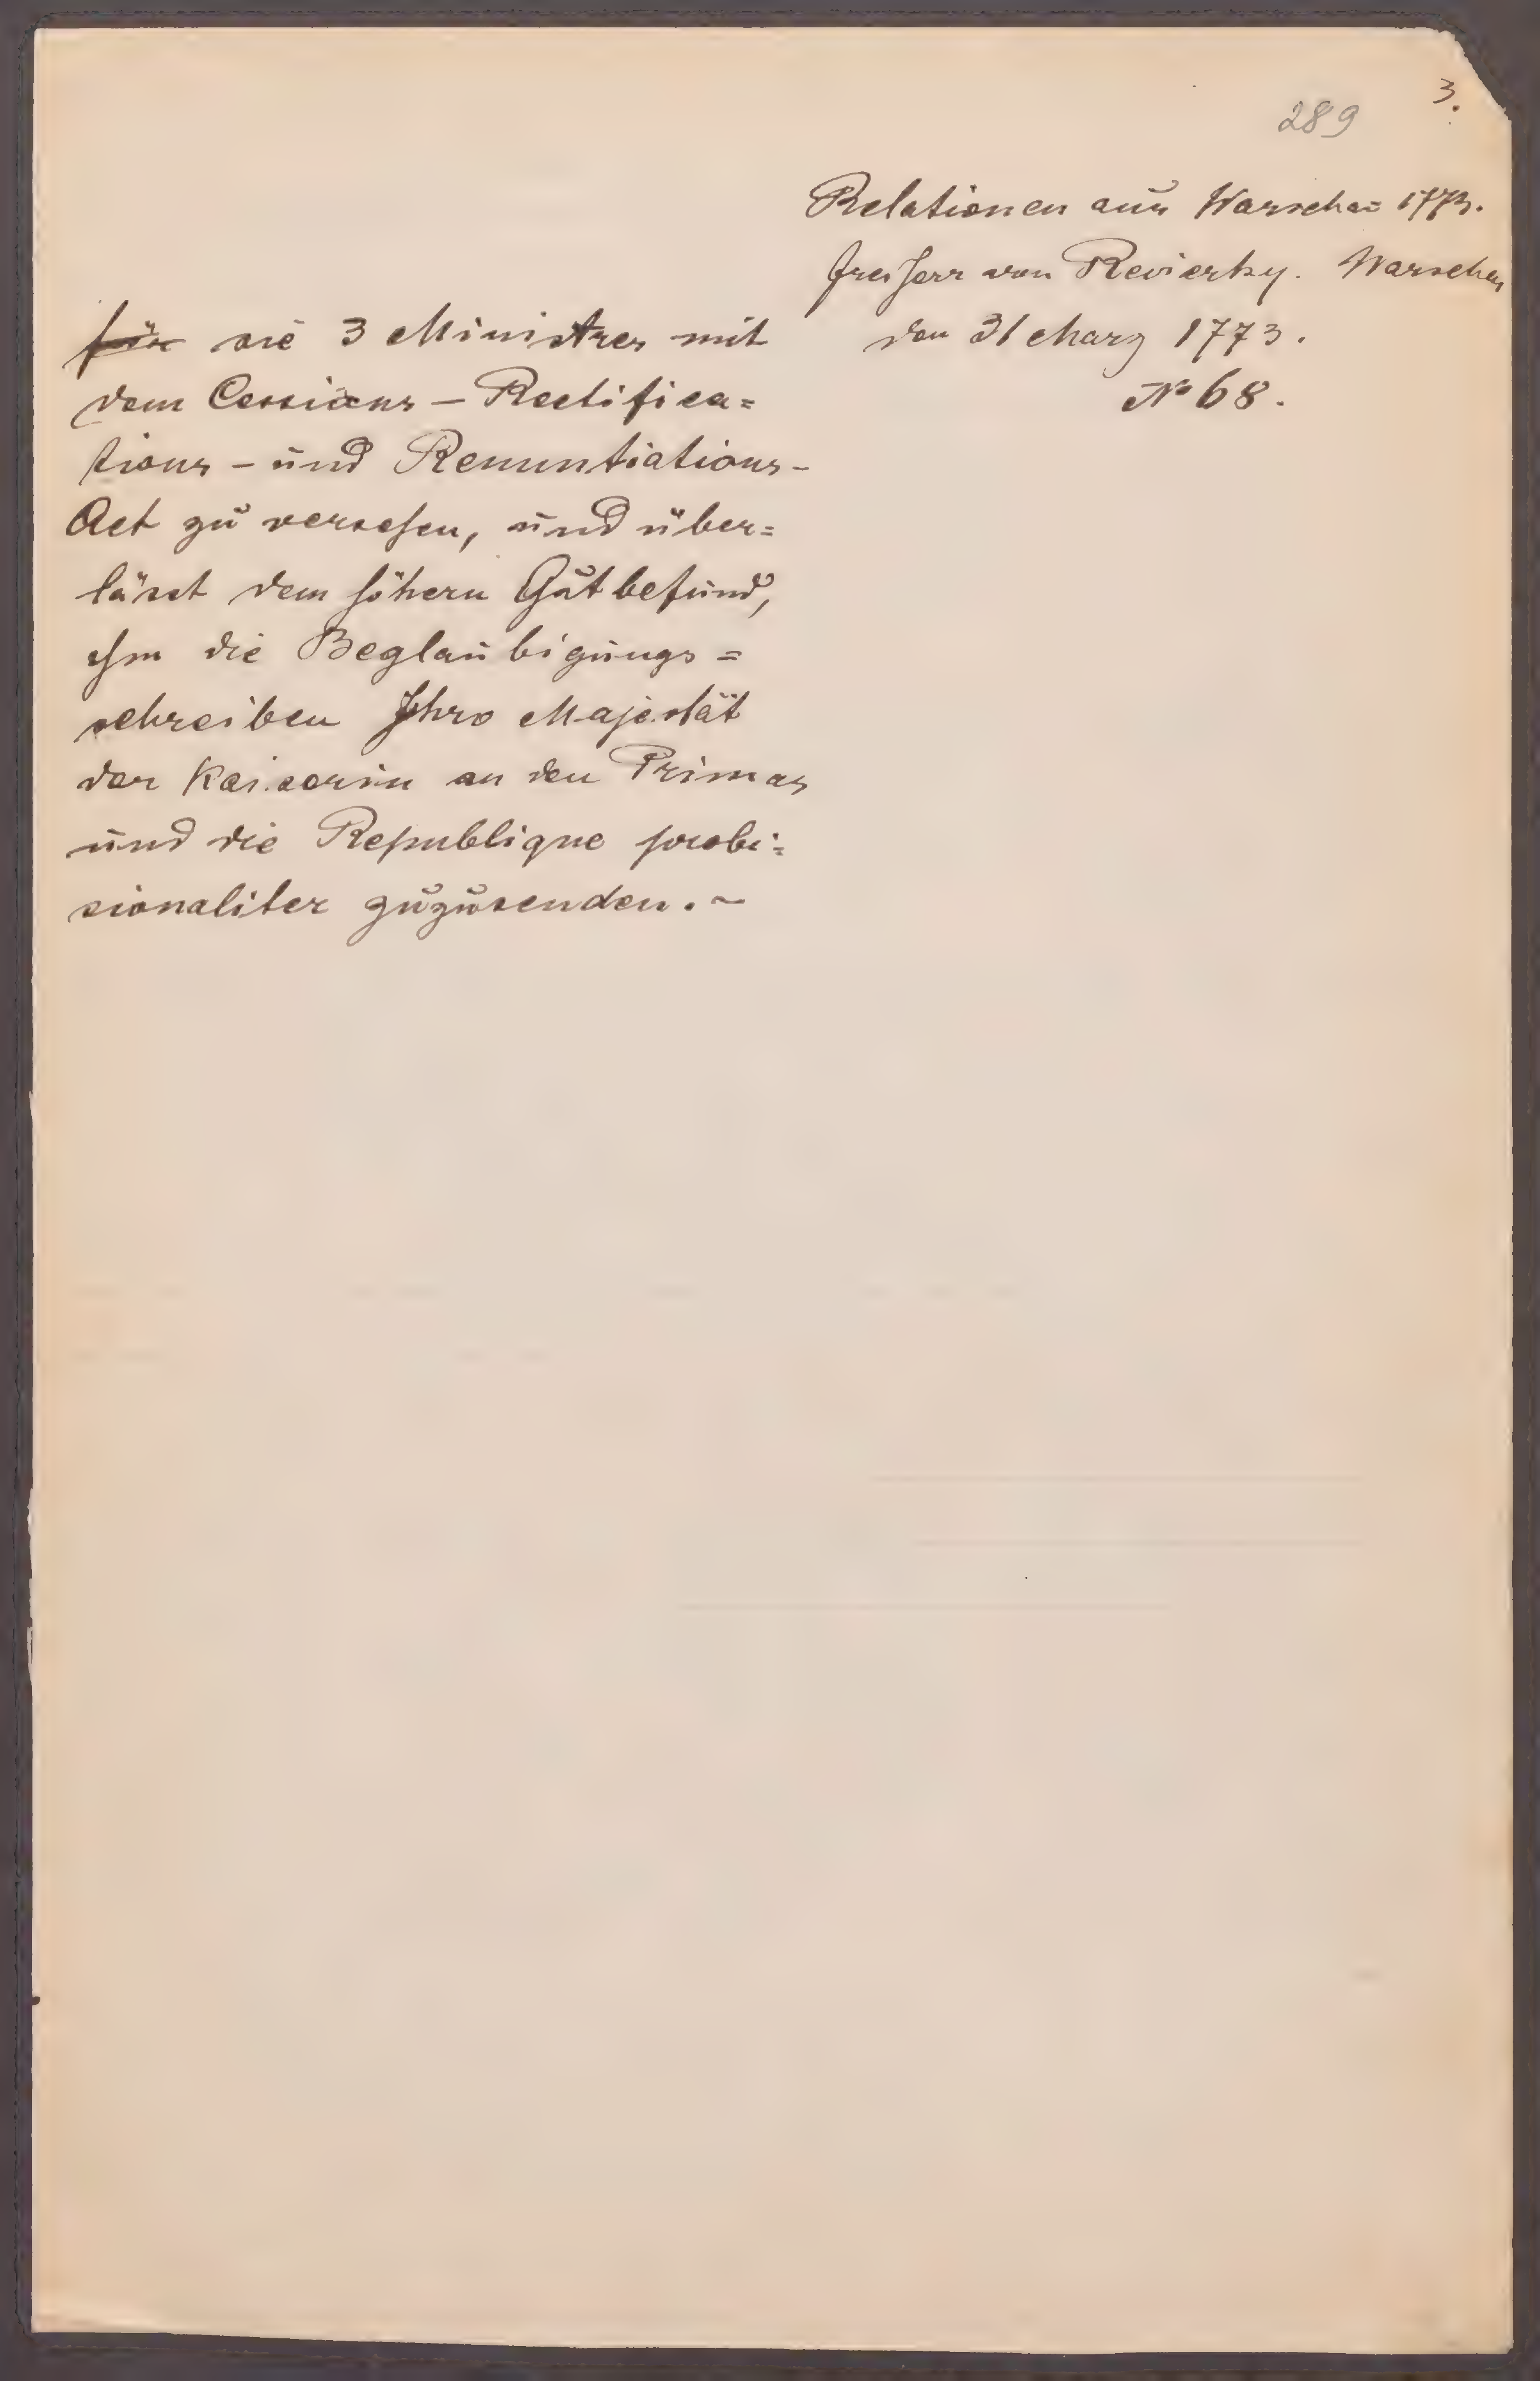 3.
289
Relationen aus Warschau 1773.
Freiherr von Reviczky. Warschau
den 31 Marz 1773.
No 68.
für die 3 Ministres mit
dem Cessions - Rectifica=
tions - und Renuntiations-
Act zu versehen, und über=
lässt dem höhern Gutbefund,
ihm die Beglaubigungs=
schreiben Ihro Majestät
der Kaiserin an den Primas
und die Republique provi=
sionaliter zuzusenden. ~